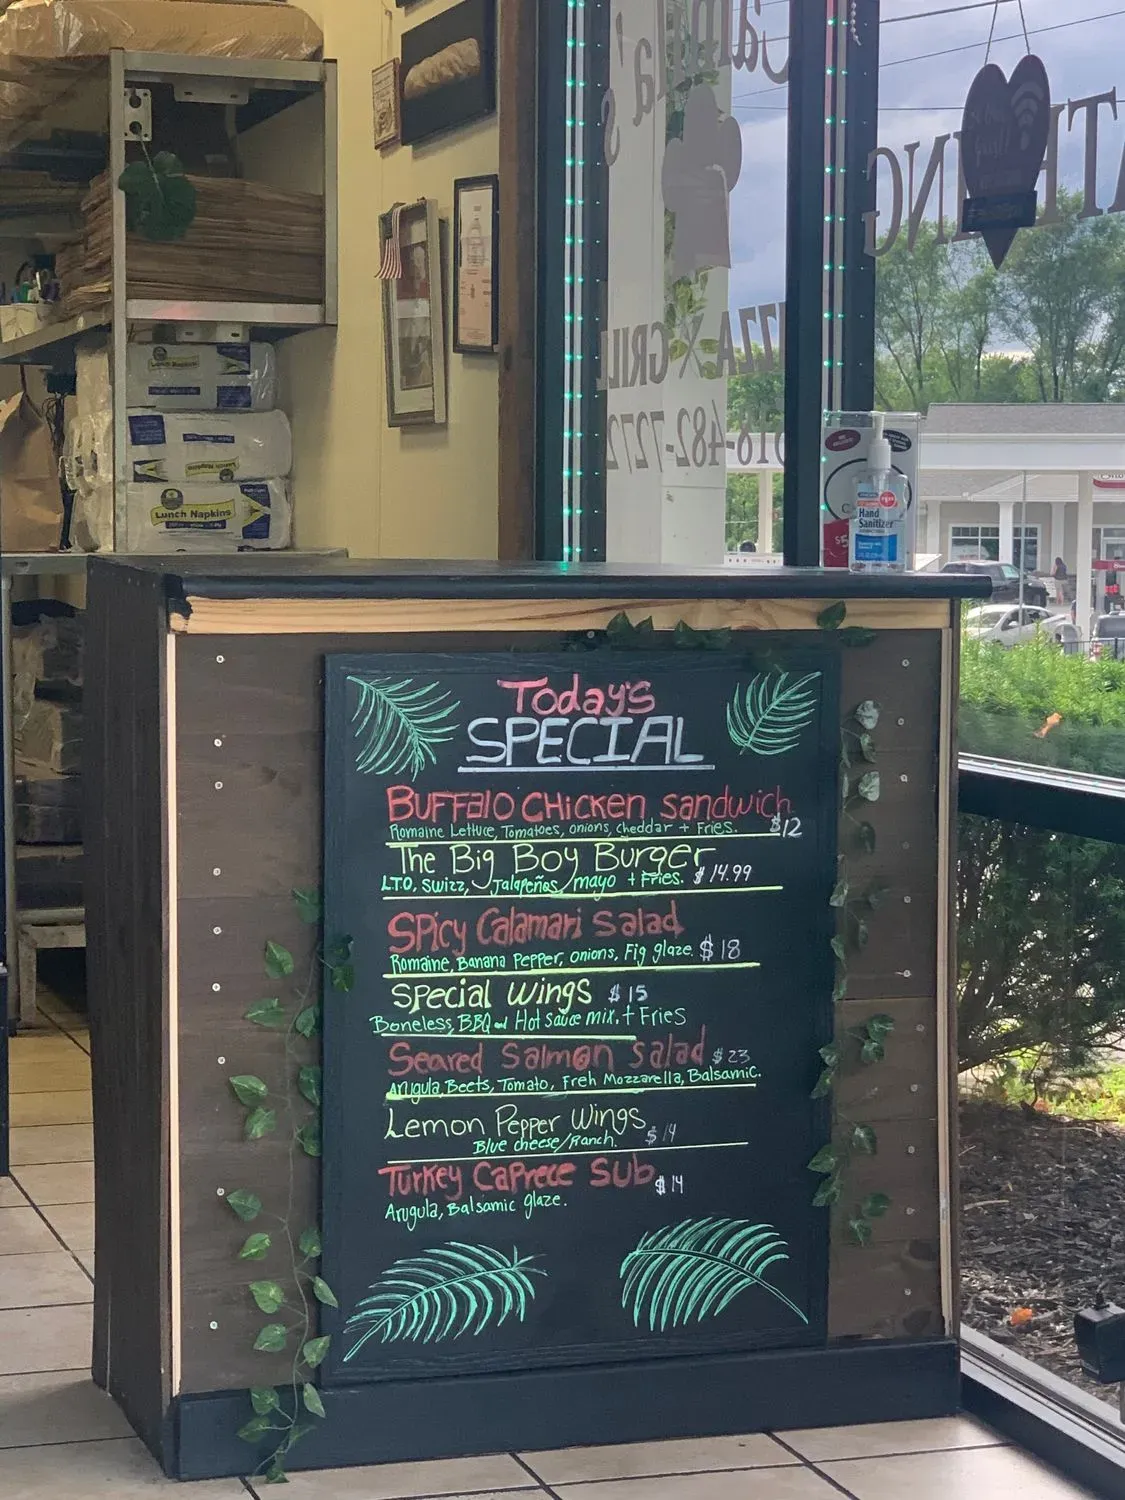 Camilla's
PIZZA X GRILL
518-482-7272
Lunch Napkins
Hand
Sanitizer
Today's
SPECIAL
BUFFAlO CHicKen sandwich
Romaine Lettuce, Tomatoes, onions, cheddar + Fries. $12
The Big Boy Burger
L.T.O, Swizz, Jalapeños/mayo + Fries. $14.99
SPicy Calamari Salad
Romaine, Banana Pepper, onions, Fig glaze. $18
Special Wings $15
Boneless, BBQ and Hot sauce mix. + Fries
Seared Salmon Salad $23
Arugula, Beets, Tomato, Freh Mozzarella, Balsamic.
Lemon Pepper Wings
Blue cheese/Ranch. $14
Turkey CaPrece Sub $14
Arugula, Balsamic glaze.